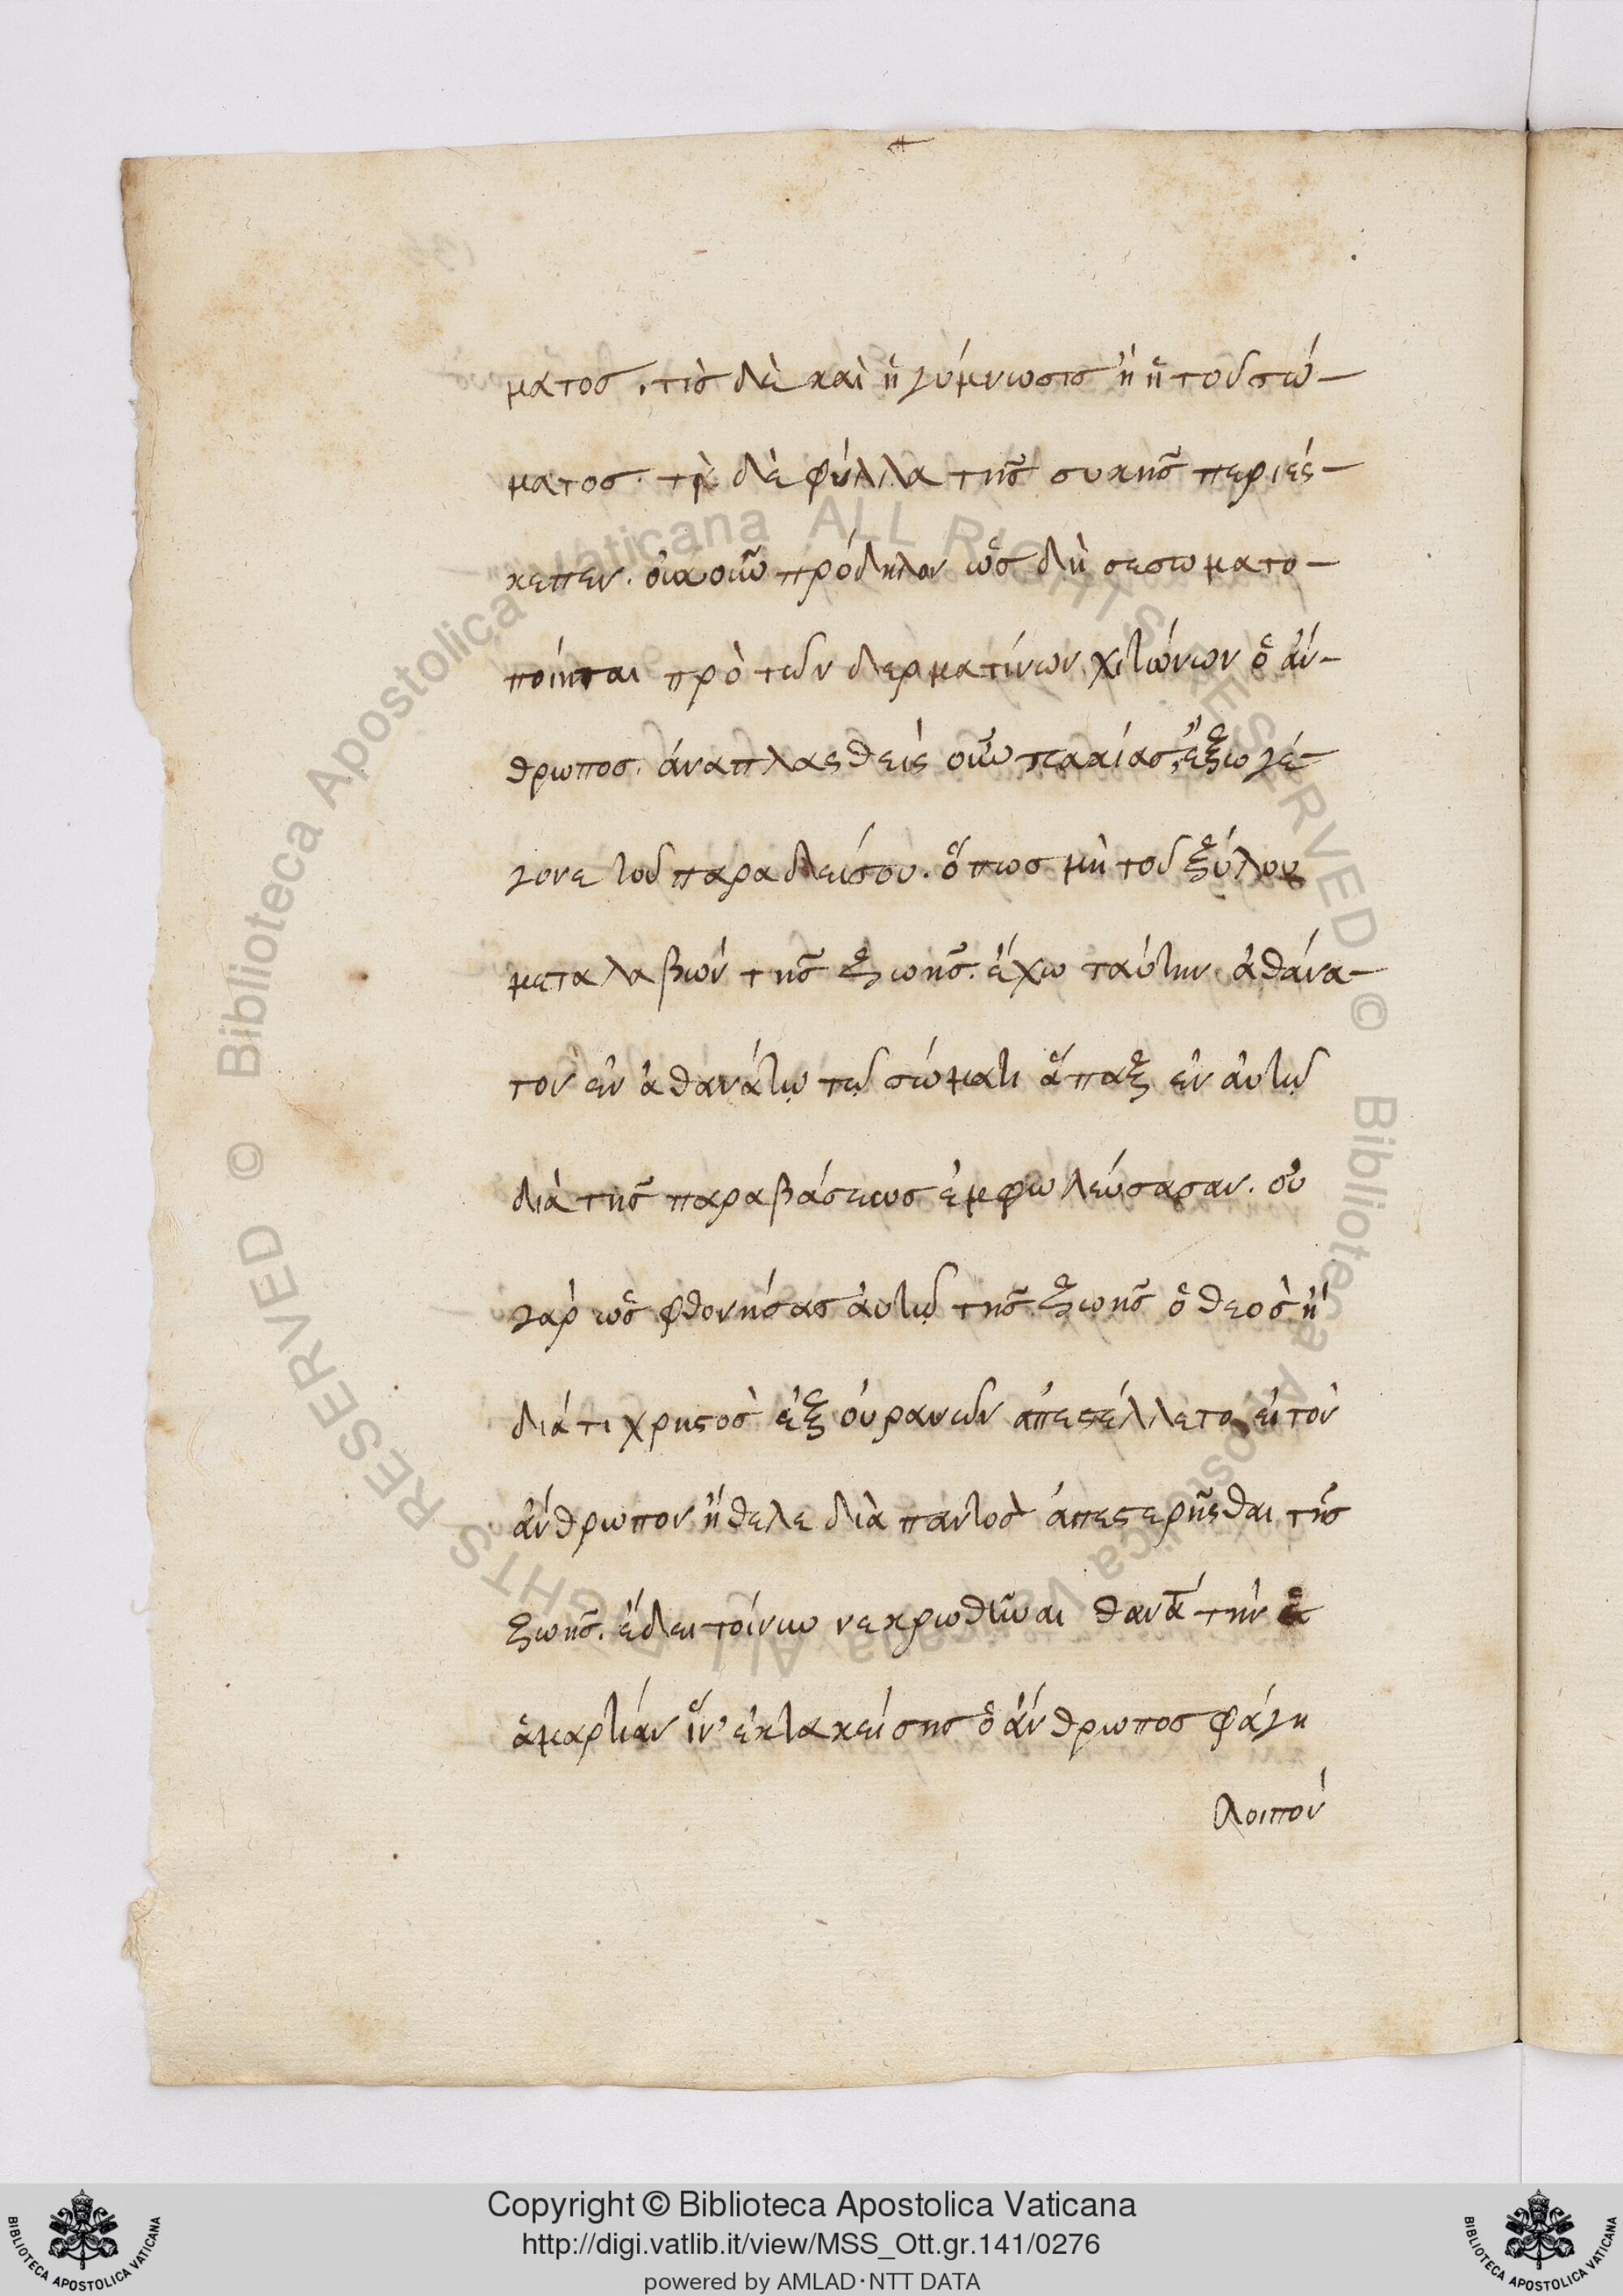 ματος. τίς δὲ καὶ ἡ γύμνωσις ἢ ἡ τοῦ σώ-
ματος. τὰ δὲ φύλλα τῆς συκῆς περιέσ-
κεπεν. οἷα οὖν πρόδηλον ὡς δὴ σεσωματο-
ποίηται πρὸ τῶν δερματίνων χιτώνων ὁ ἄν-
θρωπος. ἀναπλασθεὶς οὖν ἔξω γέ-
γονε τοῦ παραδείσου. ὅπως μὴ τοῦ ξύλου
μεταλαβὼν τῆς ζωῆς. ἔχω ταύτην ἀθάνα-
τον ἐν ἀθανάτῳ τῷ σώματι ἅπαξ ἐν αὐτῷ
διὰ τῆς παραβάσεως ἐμφωλεύσασαν. οὐ
γὰρ ὡς φθονήσας αὐτῷ τῆς ζωῆς ὁ θεὸς ἢ
διά τι χρηστὸς ἐξ οὐρανῶν ἀπεστέλλετο, εἰ τὸν
ἄνθρωπον ἤθελε διὰ παντὸς ἀπεστερῆσθαι τῆς
ζωῆς. ἔδει τοίνυν νεκρωθῆναι θανά τὴν
ἁμαρτίαν ἵν' ἐκτακείσης ὁ ἄνθρωπος φάγη
λοιπὸν
Copyright © Biblioteca Apostolica Vaticana
http://digi.vatlib.it/view/MSS_Ott.gr.141/0276
powered by AMLAD·NTT DATA
BIBLIOTECA APOSTOLICA VATICANA
BIBLIOTECA APOSTOLICA VATICANA
© Biblioteca Apostolica Vaticana ALL RIGHTS RESERVED
© Biblioteca Apostolica Vaticana ALL RIGHTS RESERVED